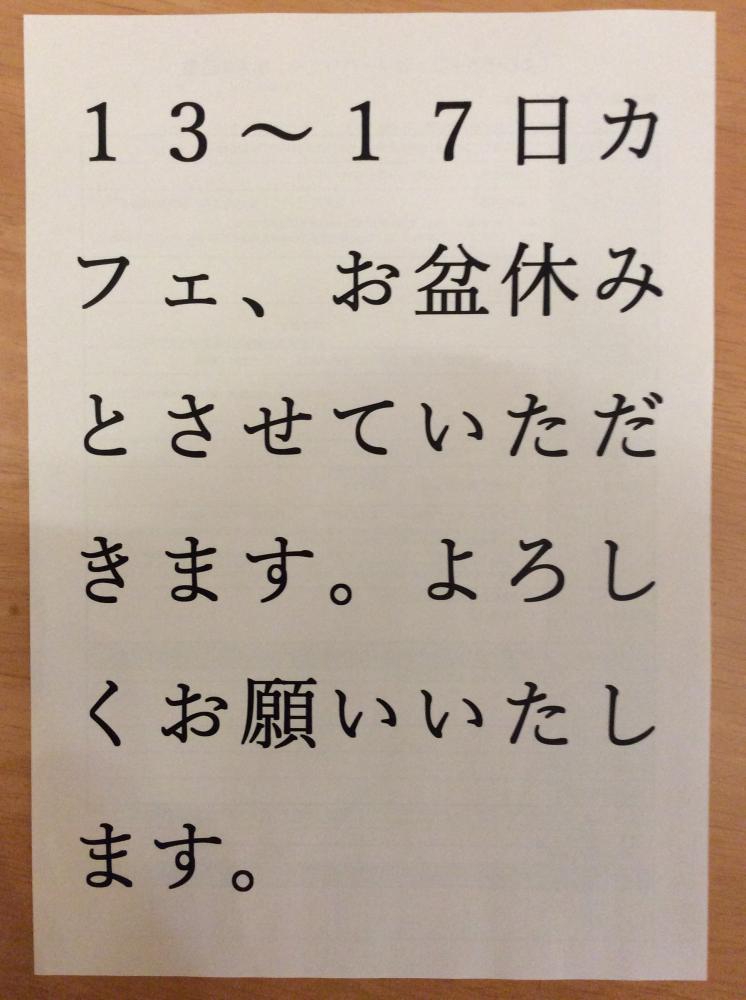 １３～１７日カ
フェ、お盆休み
とさせていただ
きます。よろし
くお願いいたし
ます。